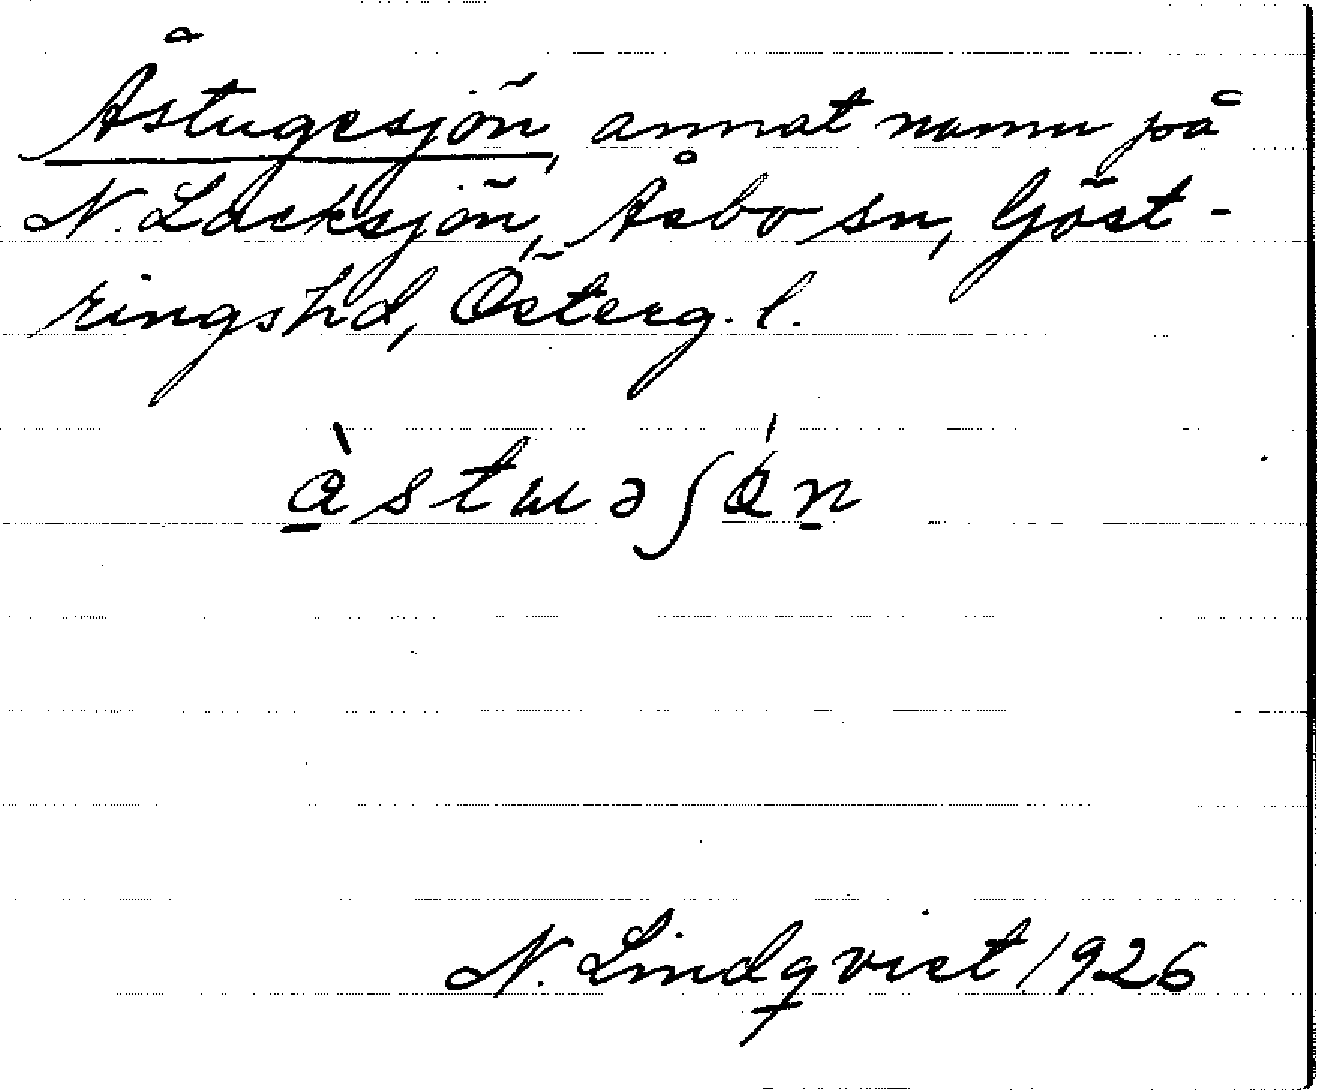 Åstugesjön, annat namn på
N. Lacksjön, Åsbo sn, Göst-
ringshd, Österg. l.
N. Lindqvist 1926